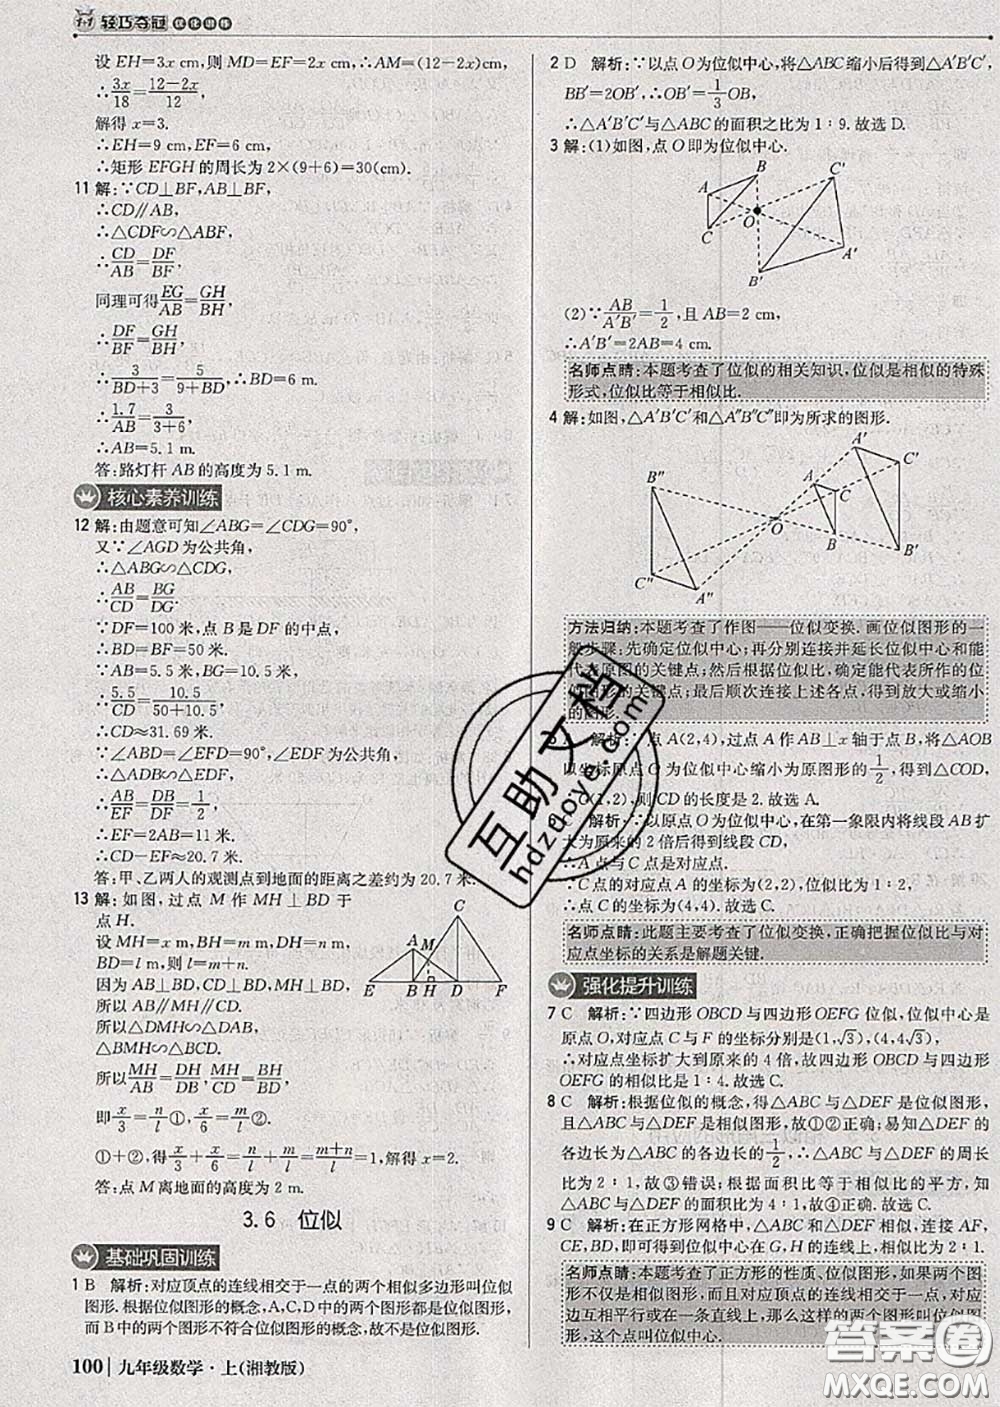 1+1 轻巧夺冠 优化训练
设 EH=3x cm,则 MD=EF=2x cm,∴AM=(12-2x)cm,
∴3x/18=(12-2x)/12,
解得 x=3.
∴EH=9 cm,EF=6 cm,
∴矩形 EFGH 的周长为 2×(9+6)=30(cm).
11 解:∵CD⊥BF,AB⊥BF,
∴CD∥AB,
∴△CDF∽△ABF,
∴CD/AB=DF/BF,
同理可得EG/AB=GH/BH,
∴DF/BF=GH/BH,
∴3/(BD+3)=5/(9+BD),∴BD=6 m,
∴1.7/AB=3/(3+6),
∴AB=5.1 m.
答:路灯杆 AB 的高度为 5.1 m.
核心素养训练
12 解:由题意可知∠ABG=∠CDG=90°,
又∵∠AGD 为公共角,
∴△ABG∽△CDG,
∴AB/CD=BG/DG.
∵DF=100 米,点 B 是 DF 的中点,
∴BD=BF=50 米,
∵AB=5.5 米,BG=10.5 米,
∴5.5/CD=10.5/(50+10.5),
∴CD≈31.69 米.
∵∠ABD=∠EFD=90°,∠EDF 为公共角,
∴△ADB∽△EDF,
∴AB/EF=DB/DF=1/2,
∴EF=2AB=11 米.
∴CD-EF≈20.7 米.
答:甲、乙两人的观测点到地面的距离之差约为 20.7 米.
13 解:如图,过点 M 作 MH⊥BD 于
点 H.
设 MH=x m,BH=m m,DH=n m,
BD=l m,则 l=(m+n) m.
因为 AB⊥BD,CD⊥BD,MH⊥BD,
所以 AB∥MH∥CD.
所以△DMH∽△DAB,
△BMH∽△BCD.
所以MH/AB=DH/DB,MH/CD=BH/BD,
即x/3=n/l①,x/6=m/l②.
①+②,得x/3+x/6=n/l+m/l=l/l=1,解得 x=2.
答:点 M 离地面的高度为 2 m.
C
A M
E B H D F
3.6 位似
基础巩固训练
1 B 解析:对应顶点的连线相交于一点的两个相似多边形叫位似
图形.根据位似图形的概念,A,C,D 中的两个图形都是位似图形,
而 B 中的两个图形不符合位似图形的概念,故不是位似图形.
100 九年级数学·上(湘教版)
2 D 解析:∵以点 O 为位似中心,将△ABC 缩小后得到△A′B′C′,
BB′=2OB′,∴OB′=1/3OB,
∴△A′B′C′与△ABC 的面积之比为 1∶9.故选 D.
3 解:(1)如图,点 O 即为位似中心.
B C′
A
O
C A′
B′
(2)∵AB/A′B′=1/2,且 AB=2 cm.
∴A′B′=2AB=4 cm.
名师点睛:本题考查了位似的相关知识,位似是相似的特殊
形式,位似比等于相似比.
4 解:如图,△A′B′C′和△A″B″C″即为所求的图形.
A′
C′
B″ A C
O
B B′
C″
A″
方法归纳:本题考查了作图——位似变换.画位似图形的一
般步骤:先确定位似中心;再分别连接并延长位似中心和能
代表原图的关键点;然后根据位似比,确定能代表所作的位
似图形的关键点;最后顺次连接上述各点,得到放大或缩小
的图形.
解析:∵点 A(2,4),过点 A 作 AB⊥x 轴于点 B,将△AOB
以坐标原点 O 为位似中心缩小为原图形的1/2,得到△COD,
C(1,2),则 CD 的长度是 2.故选 A.
解析:∵以原点 O 为位似中心,在第一象限内将线段 AB 扩
大为原来的 2 倍后得到线段 CD,
∴A 点与 C 点是对应点.
∵C 点的对应点 A 的坐标为(2,2),位似比为 1∶2,
∴点 C 的坐标为(4,4).故选 C.
名师点睛:此题主要考查了位似变换,正确把握位似比与对
应点坐标的关系是解题关键.
强化提升训练
7 C 解析:∵四边形 OBCD 与四边形 OEFG 位似,位似中心是
原点 O,对应点 C 与 F 的坐标分别是(1,√3),(4,4√3),
∴对应点坐标扩大到原来的 4 倍,故四边形 OBCD 与四边形
OEFG 的相似比是 1∶4.故选 C.
8 C 解析:根据位似的概念,得△ABC 与△DEF 是位似图形,
且△ABC 与△DEF 是相似图形,故①②正确;易知△DEF 的
各边长为△ABC 的各边长的1/2,即△ABC 与△DEF 的周长
比为 2∶1,故③错误;根据面积比等于相似比的平方,可知
△ABC 与△DEF 的面积比为 4∶1,故④正确.故选 C.
9 C 解析:在正方形网格中,△ABC 和△DEF 相似,连接 AF,
CE,即可得位似中心在 G,H 的连线上,相似比为 2∶1.
名师点睛:本题考查了正方形的性质、位似图形,如果两个图
形不仅是相似图形,而且对应顶点的连线相交于一点,对应
边互相平行或在一条直线上,那么这样的两个图形叫位似图
形,这个点叫位似中心.
互助文档
hdzuoye.com
答案圈
MXQE.COM